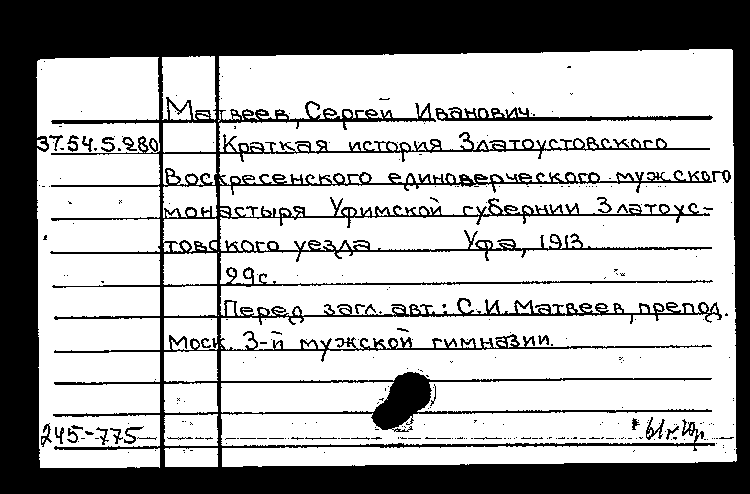 Матвеев, Сергей Иванович.
37.54.5.280 Краткая история Златоустовского
Воскресенского единоверческого мужского
монастыря Уфимской губернии Златоус-
товского уезда. Уфа, 1913.
29с.
Перед загл. авт.: С.И. Матвеев, препод.
Моск. 3-й мужской гимназии.
245-775